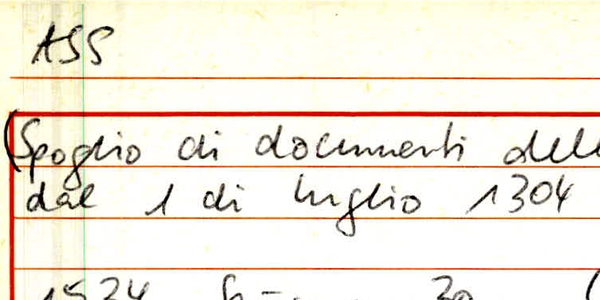 ASS
(Spoglio di documenti dell
dal 1 di luglio 1304